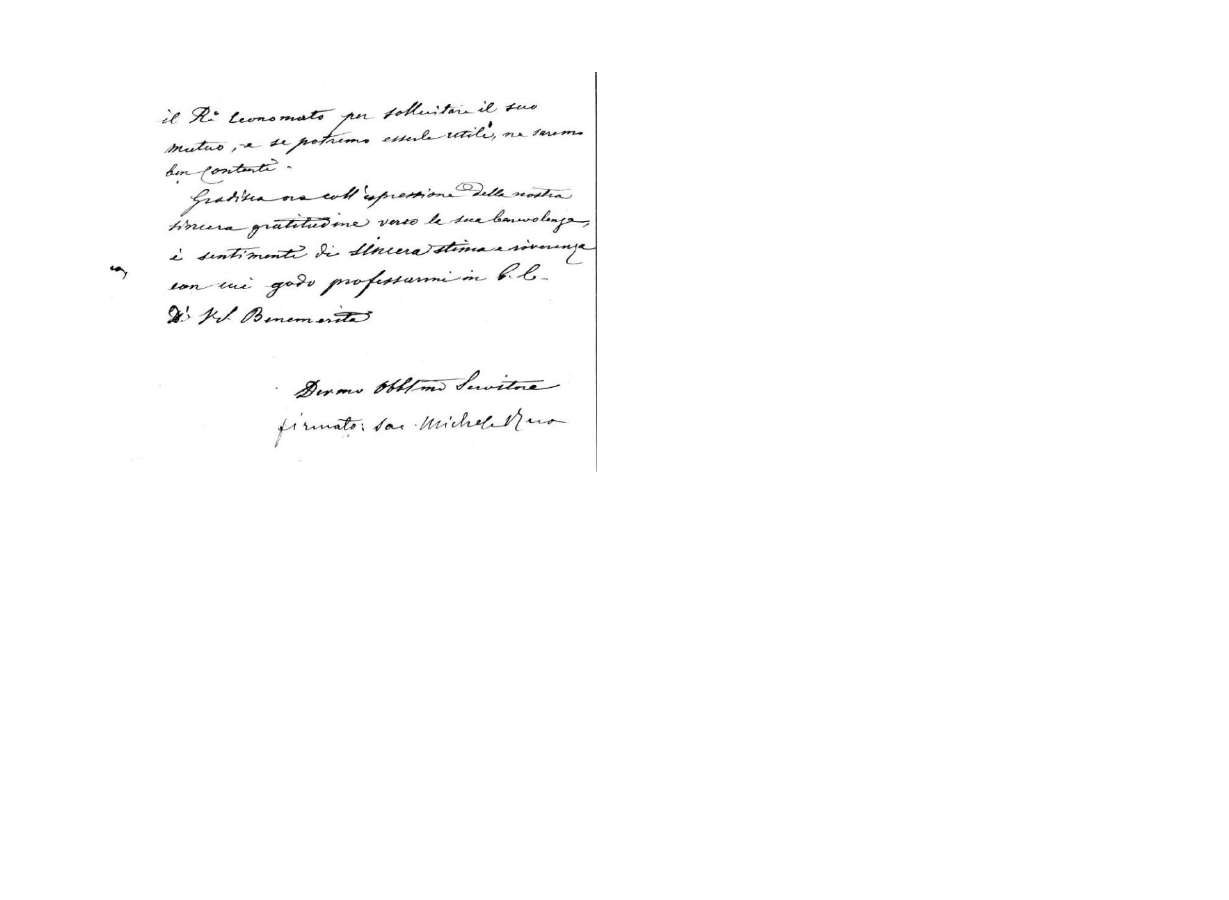 il R.° Economato per sollecitare il suo
mutuo, e se potremo esserle utili, ne saremo
ben contenti.
Gradisca ora coll'espressione della nostra
sincera gratitudine verso la sua benevolenza,
i sentimenti di sincera stima e riverenza
con cui godo professarmi in G. C.
Di V. S. Benemerita
Dev.mo Obbl.mo Servitore
firmato: Sac. Michele Rua